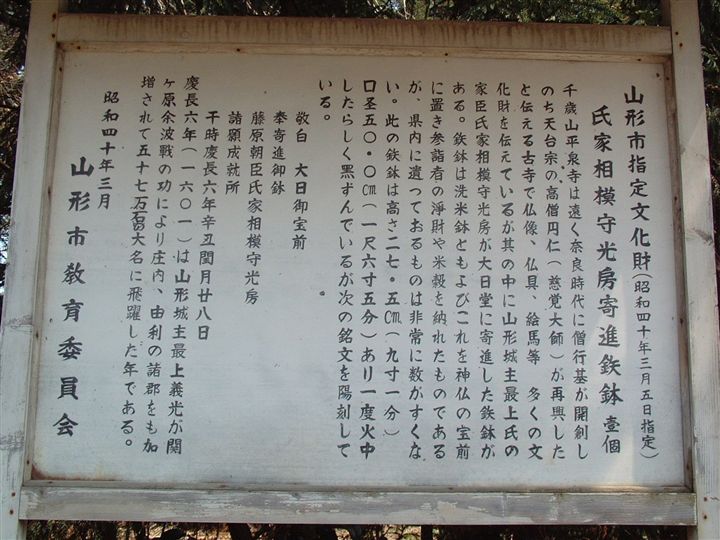 山形市指定文化財(昭和四十年三月五日指定)
氏家相模守光房寄進鉄鉢 壹個
千歳山平泉寺は遠く奈良時代に僧行基が開創し
のち天台宗の高僧円仁(慈覚大師)が再興した
と伝える古寺で仏像、仏具、絵馬等 多くの文
化財を伝えているが其の中に山形城主最上氏の
家臣氏家相模守光房が大日堂に寄進した鉄鉢が
ある。鉄鉢は洗米鉢ともよびこれを神仏の宝前
に置き参詣者の淨財や米穀を納れたものである
が、県内に遺っておるものは非常に数がすくな
い。此の鉄鉢は高さ二七・五㎝(九寸一分)
口圣五〇・〇㎝(一尺六寸五分)あり一度火中
したらしく黒ずんでいるが次の銘文を陽刻して
いる。
敬白 大日御宝前
奉寄進御鉢
藤原朝臣氏家相模守光房
諸願成就所
干時慶長六年辛丑閏月廿八日
慶長六年(一六〇一)は山形城主最上義光が関
ヶ原余波戦の功により庄内、由利の諸郡をも加
増されて五十七万石大名に飛躍した年である。
昭和四十年三月
山形市教育委員会